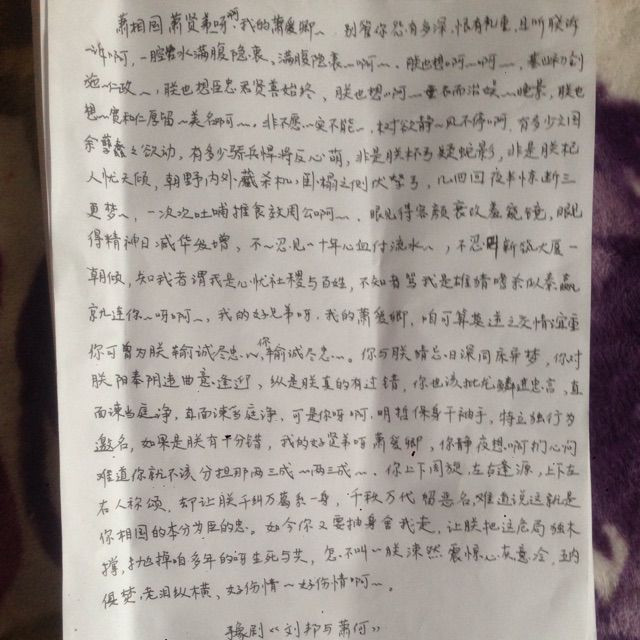 萧相国萧贤弟呀啊我的萧爱卿~、别管你怨有多深,恨有多重,且听朕诉
~诉啊,一腔苦水满腹隐衷、满腹隐衷~啊~、朕也想~啊~啊~、基业初创
施~仁政~,朕也想臣忠君贤善始终,朕也想~啊~垂衣而治娱~晚景,朕也
想~宽和仁厚留~美名啊~,非不愿~实不能~,树欲静~风不停啊,有多少六国
余孽蠢之欲动,有多少骄兵悍将反心萌,非是朕杯弓疑蛇影,非是朕杞
人忧天倾,朝野内外藏杀机,卧榻之侧伏弩弓,几回回夜半惊断三
更梦~,一次次吐哺推食效周公啊~,眼见得容颜衰改羞窥镜,眼见
得精神日减华发增,不~忍见~十年心血付流水~,不忍叫新筑大厦一
朝倾,知我者谓我是心忧社稷与百姓,不知者骂我是雄猜嗜杀似秦嬴
就连你~呀啊~,我的好兄弟呀,我的萧爱卿,咱可算莫逆之交情谊重
你可曾为朕输诚尽忠~,你输诚尽忠~。你与朕貌忠旧深同床异梦,你对
朕阳奉阴违曲意逢迎,纵是朕真的有过错,你也该批龙鳞进忠言,直
面谏当庭诤,直面谏当庭诤,可是你呀啊,明哲保身干袖手,特立独行为
邀名,如果是朕有十分错,我的好贤弟呀萧爱卿,你静夜想啊扪心问
难道你就不该分担那两三成~两三成~、你上下周旋,左右逢源,上下左
右人称颂,却让朕千纠万葛系一身,千秋万代留恶名,难道说这就是
你相国的本分为臣的忠。如今你又要抽身舍我走,让朕把这危局独木
撑,抛掉咱多年的呀生死与共,怎不叫~朕凄然震惊心灰意冷,五内
俱焚,老泪纵横,好伤情~好伤情啊~。
豫剧《刘邦与萧何》